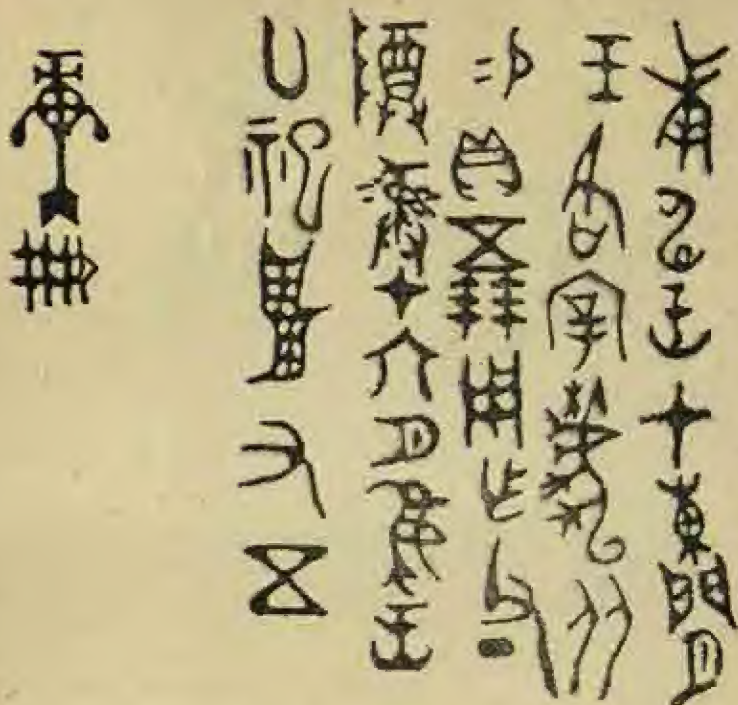 庚申王才闌
王各宰椃从
易貝五朋用乍父丁
尊彝才六月隹王
廿祀翌又五
庚冊